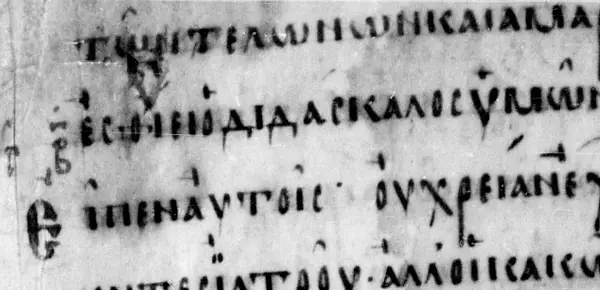 ΤΩΝΤΕΛΩΝΩΝΚΑΙΑΜΑ
ΕϹΘΙΕΙΟΔΙΔΑϹΚΑΛΟϹΥΜΩΝ
ΕΙΠΕΝΑΥΤΟΙϹ· ΟΥΧΡΕΙΑΝΕΧ
ΝΤΕϹΪΑΤΡΟΥ·ΑΛΛΟΙΚΑΚΩ